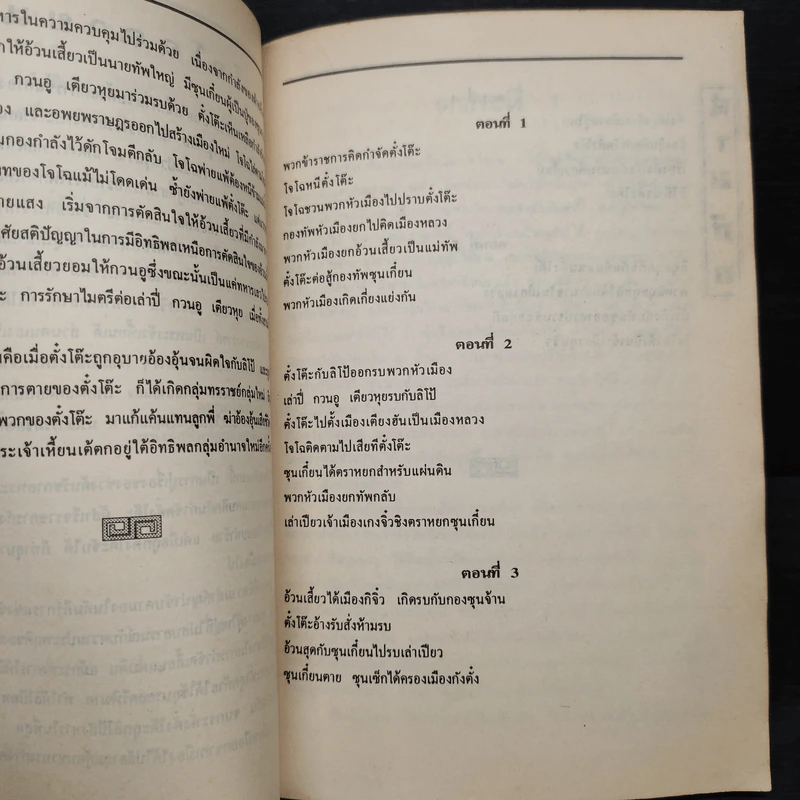 หารในความควบคุมไปร่วมด้วย เนื่องจากกำลังของ
ให้อ้วนเสี้ยวเป็นนายทัพใหญ่ มีซุนเกี๋ยนผู้เป็น
กวนอู เตียวหุยมาร่วมรบด้วย ตั๋งโต๊ะเห็นเหลือกำลัง
และอพยพราษฎรออกไปสร้างเมืองใหม่ โจโฉ
นกองกำลังไว้ดักโจมตีกลับ โจโฉพ่ายแพ้ต้องหนี
ทของโจโฉแม้ไม่โดดเด่น ซ้ำยังพ่ายแพ้ตั๋งโต๊ะ
ายแสง เริ่มจากการตัดสินใจให้อ้วนเสี้ยวที่มีกำลัง
ศัยสติปัญญาในการมีอิทธิพลเหนือการตัดสินใจของ
อ้วนเสี้ยวยอมให้กวนอูซึ่งขณะนั้นเป็นแค่ทหารเลว
ะ การรักษาไมตรีต่อเล่าปี่ กวนอู เตียวหุย เมื่อ
นคือเมื่อตั๋งโต๊ะถูกอุบายอ้องอุ้นจนผิดใจกับลิโป้
การตายของตั๋งโต๊ะ ก็ได้เกิดกลุ่มทรราชย์กลุ่มใหม่
พวกของตั๋งโต๊ะ มาแก้แค้นแทนลูกพี่ ฆ่าอ้องอุ้น
ระเจ้าเหี้ยนเต้ตกอยู่ใต้อิทธิพลกลุ่มอำนาจใหม่อีกครั้ง
ตอนที่ 1
พวกข้าราชการคิดกำจัดตั๋งโต๊ะ
โจโฉหนีตั๋งโต๊ะ
โจโฉชวนพวกหัวเมืองไปปราบตั๋งโต๊ะ
กองทัพหัวเมืองยกไปติดเมืองหลวง
พวกหัวเมืองยกอ้วนเสี้ยวเป็นแม่ทัพ
ตั๋งโต๊ะต่อสู้กองทัพซุนเกี๋ยน
พวกหัวเมืองเกิดเกี่ยงแย่งกัน
ตอนที่ 2
ตั๋งโต๊ะกับลิโป้ออกรบพวกหัวเมือง
เล่าปี่ กวนอู เตียวหุยรบกับลิโป้
ตั๋งโต๊ะไปตั้งเมืองเตียงฮันเป็นเมืองหลวง
โจโฉติดตามไปเสียทีตั๋งโต๊ะ
ซุนเกี๋ยนได้ตราหยกสำหรับแผ่นดิน
พวกหัวเมืองยกทัพกลับ
เล่าเปียวเจ้าเมืองเกงจิ๋วชิงตราหยกซุนเกี๋ยน
ตอนที่ 3
อ้วนเสี้ยวได้เมืองกิจิ๋ว เกิดรบกับกองซุนจ้าน
ตั๋งโต๊ะอ้างรับสั่งห้ามรบ
อ้วนสุดกับซุนเกี๋ยนไปรบเล่าเปียว
ซุนเกี๋ยนตาย ซุนเซ็กได้ครองเมืองกังตั๋ง